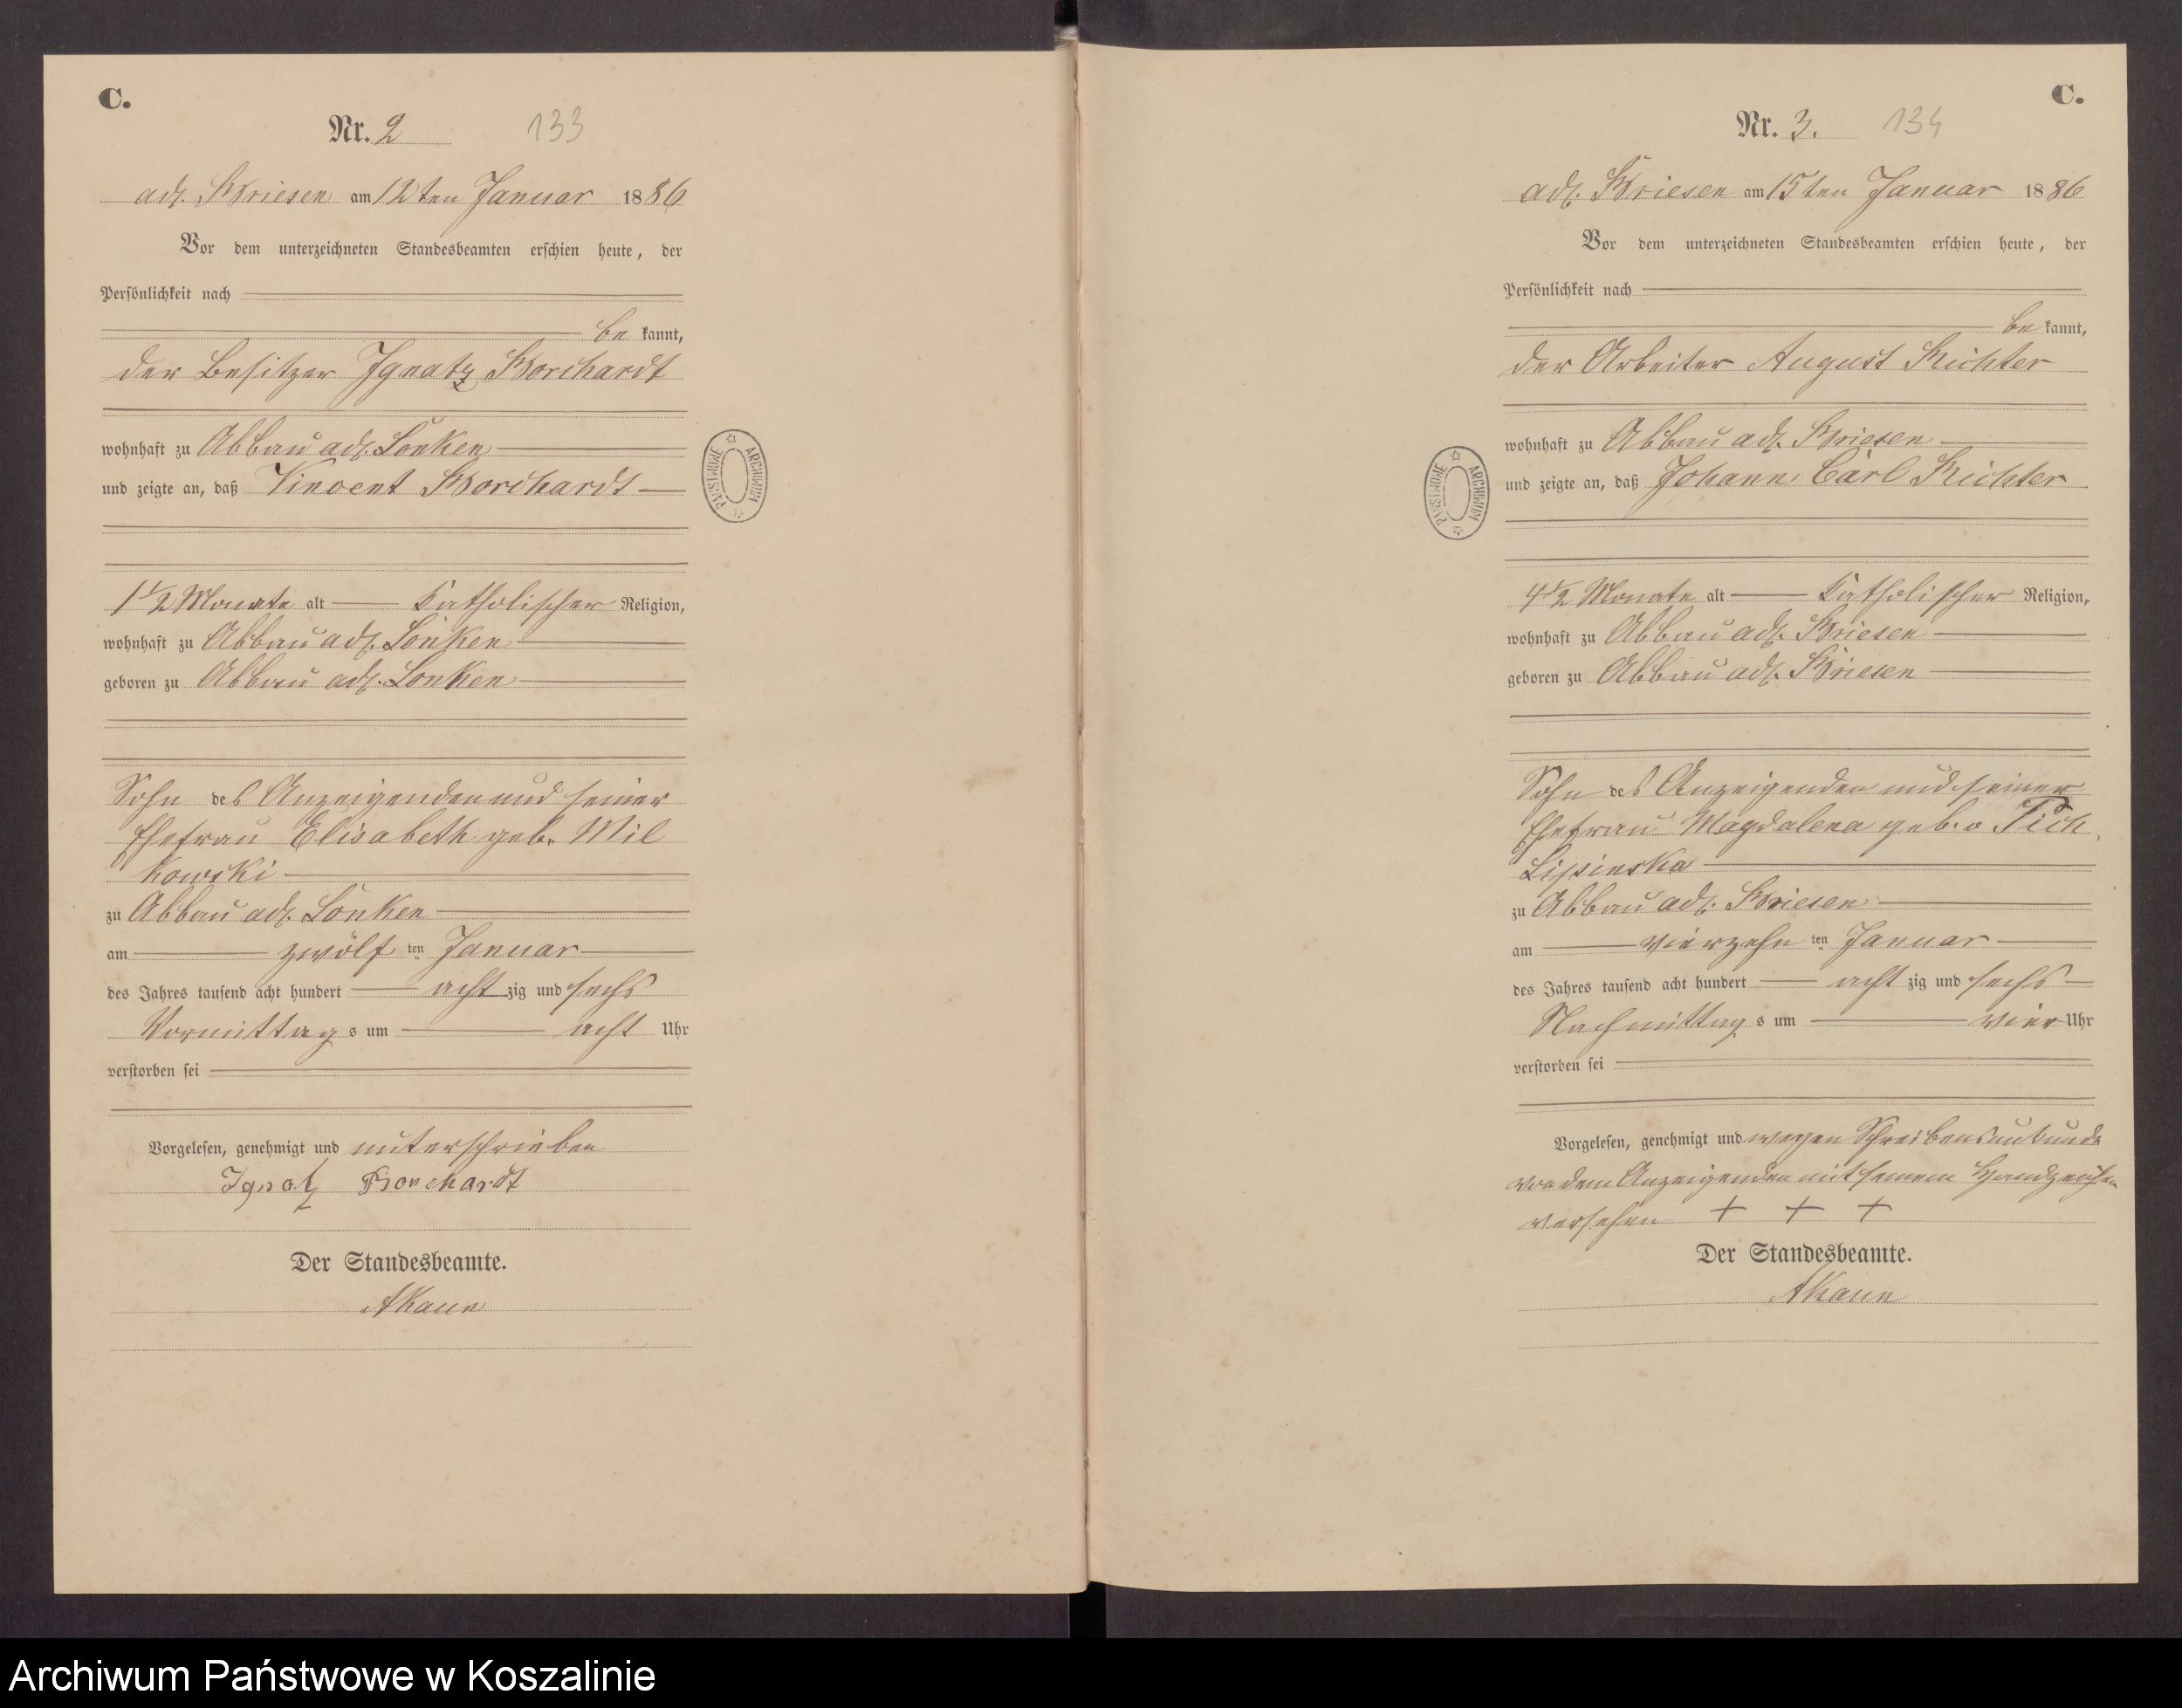 C.
Nr. 2 133
adl. Briesen am 12ten Januar 1886
Vor dem unterzeichneten Standesbeamten erschien heute, der
Persönlichkeit nach
be kannt,
der Besitzer Ignatz Borchardt
wohnhaft zu Abbau adl. Lonken
und zeigte an, daß Vincent Borchardt
1 1/2 Monate alt Katholischer Religion,
wohnhaft zu Abbau adl. Lonken
geboren zu Abbau adl. Lonken
Sohn des Anzeigenden und seiner
Ehefrau Elisabeth geb. Mil
kowski
zu Abbau adl. Lonken
am zwölf ten Januar
des Jahres tausend acht hundert acht zig und sechs
Vormittag s um acht Uhr
verstorben sei
Vorgelesen, genehmigt und unterschrieben
Ignatz Borchardt
Der Standesbeamte.
AKaun
ARCHIWUM PAŃSTWOWE
C.
Nr. 3. 134
adl. Briesen am 15ten Januar 1886
Vor dem unterzeichneten Standesbeamten erschien heute, der
Persönlichkeit nach
be kannt,
der Arbeiter August Richter
wohnhaft zu Abbau adl. Briesen
und zeigte an, daß Johann Carl Richter
4 1/2 Monate alt Katholischer Religion,
wohnhaft zu Abbau adl. Briesen
geboren zu Abbau adl. Briesen
Sohn des Anzeigenden und seiner
Ehefrau Magdalena geb.
Lipinska
zu Abbau adl. Briesen
am vierzehn ten Januar
des Jahres tausend acht hundert acht zig und sechs
Nachmittag s um vier Uhr
verstorben sei
Vorgelesen, genehmigt und wegen Schreibensunkunde
von dem Anzeigenden mit seinem Handzeichen
versehen + + +
Der Standesbeamte.
AKaun
ARCHIWUM PAŃSTWOWE
Archiwum Państwowe w Koszalinie